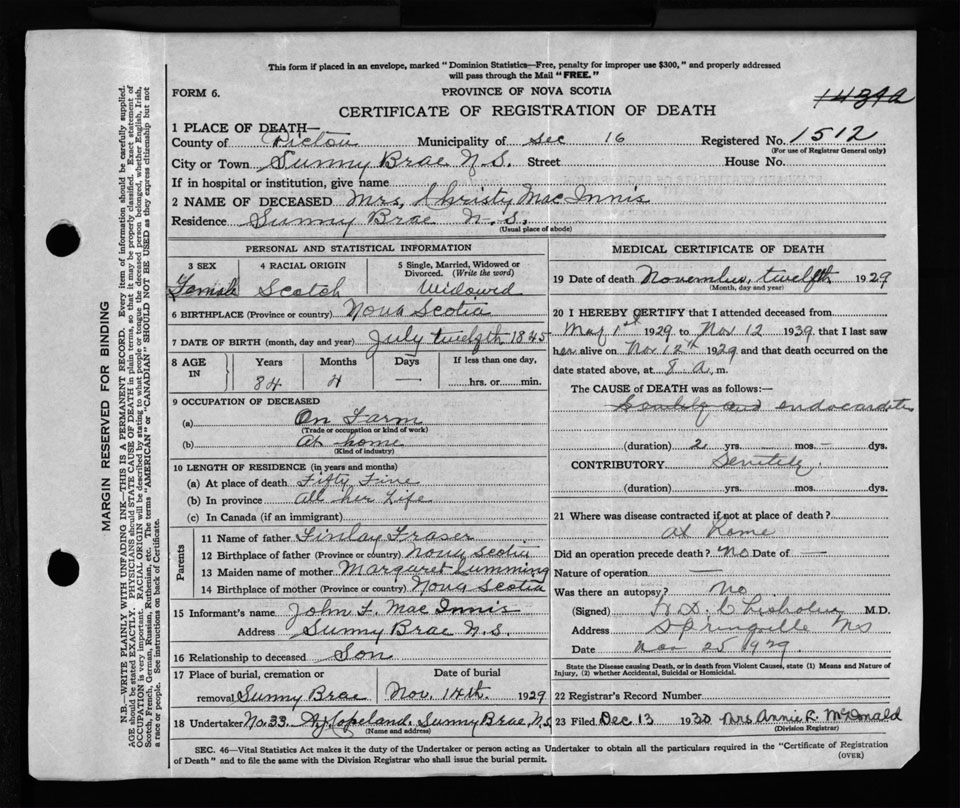 This form if placed in an envelope, marked "Dominion Statistics—Free, penalty for improper use $300," and properly addressed
will pass through the Mail "FREE."
FORM 6.
PROVINCE OF NOVA SCOTIA
CERTIFICATE OF REGISTRATION OF DEATH
1 PLACE OF DEATH—
County of Pictou Municipality of Sec 16 Registered No. 1512
(For use of Registrar General only)
City or Town Sunny Brae N.S. Street House No.
If in hospital or institution, give name
2 NAME OF DECEASED Mrs, Christy Mac Innis
Residence Sunny Brae N.S.
(Usual place of abode)
PERSONAL AND STATISTICAL INFORMATION
3 SEX
Female
4 RACIAL ORIGIN
Scotch
5 Single, Married, Widowed or
Divorced. (Write the word)
Widowed
6 BIRTHPLACE (Province or country) Nova Scotia
7 DATE OF BIRTH (month, day and year) July twelfth 1845
8 AGE
IN
Years
84
Months
4
Days
—
If less than one day,
hrs. or min.
9 OCCUPATION OF DECEASED
(a) On Farm
(Trade or occupation or kind of work)
(b) At home
(Kind of industry)
10 LENGTH OF RESIDENCE (in years and months)
(a) At place of death Fifty Five
(b) In province All her Life
(c) In Canada (if an immigrant)
Parents
11 Name of father Finlay Fraser
12 Birthplace of father (Province or country) Nova Scotia
13 Maiden name of mother Margaret Cumming
14 Birthplace of mother (Province or country) Nova Scotia
15 Informant's name John F. Mac Innis
Address Sunny Brae N.S.
16 Relationship to deceased Son
17 Place of burial, cremation or
removal Sunny Brae
Date of burial
Nov. 14th. 1929
18 Undertaker No. 33. Copeland. Sunny Brae N.S
(Name and address)
MEDICAL CERTIFICATE OF DEATH
19 Date of death November, twelfth 1929
(Month, day and year)
20 I HEREBY CERTIFY that I attended deceased from
May 1st 1929 to Nov 12 1939, that I last saw
her alive on Nov 12th 1929 and that death occurred on the
date stated above, at 8 a. m.
The CAUSE of DEATH was as follows:—
and endocarditis
(duration) 2 yrs. mos. – dys.
CONTRIBUTORY Senility
(duration) yrs. mos. dys.
21 Where was disease contracted if not at place of death?
at Home
Did an operation precede death? No Date of —
Nature of operation —
Was there an autopsy? No
(Signed) Chisholm M.D.
Address Springville NS
Date 25 1929.
State the Disease causing Death, or in death from Violent Causes, state (1) Means and Nature of
Injury, (2) whether Accidental, Suicidal or Homicidal.
22 Registrar's Record Number
23 Filed Dec 13 1930 Mrs Annie R. McDonald
(Division Registrar)
SEC. 46—Vital Statistics Act makes it the duty of the Undertaker or person acting as Undertaker to obtain all the particulars required in the "Certificate of Registration
of Death" and to file the same with the Division Registrar who shall issue the burial permit.
(OVER)
MARGIN RESERVED FOR BINDING
N.B.—WRITE PLAINLY WITH UNFADING INK—THIS IS A PERMANENT RECORD. Every item of information should be carefully supplied.
AGE should be stated EXACTLY. PHYSICIANS should STATE CAUSE OF DEATH in plain terms, so that it may be properly classified. Exact statement of
OCCUPATION is very important. RACIAL ORIGIN will be described by stating to what people or tongue the deceased person belonged, whether English, Irish,
Scotch, French, German, Russian, Ruthenian, etc. The terms "AMERICAN" or "CANADIAN" SHOULD NOT BE USED as they express citizenship but not
a race or people. See instructions on back of Certificate.